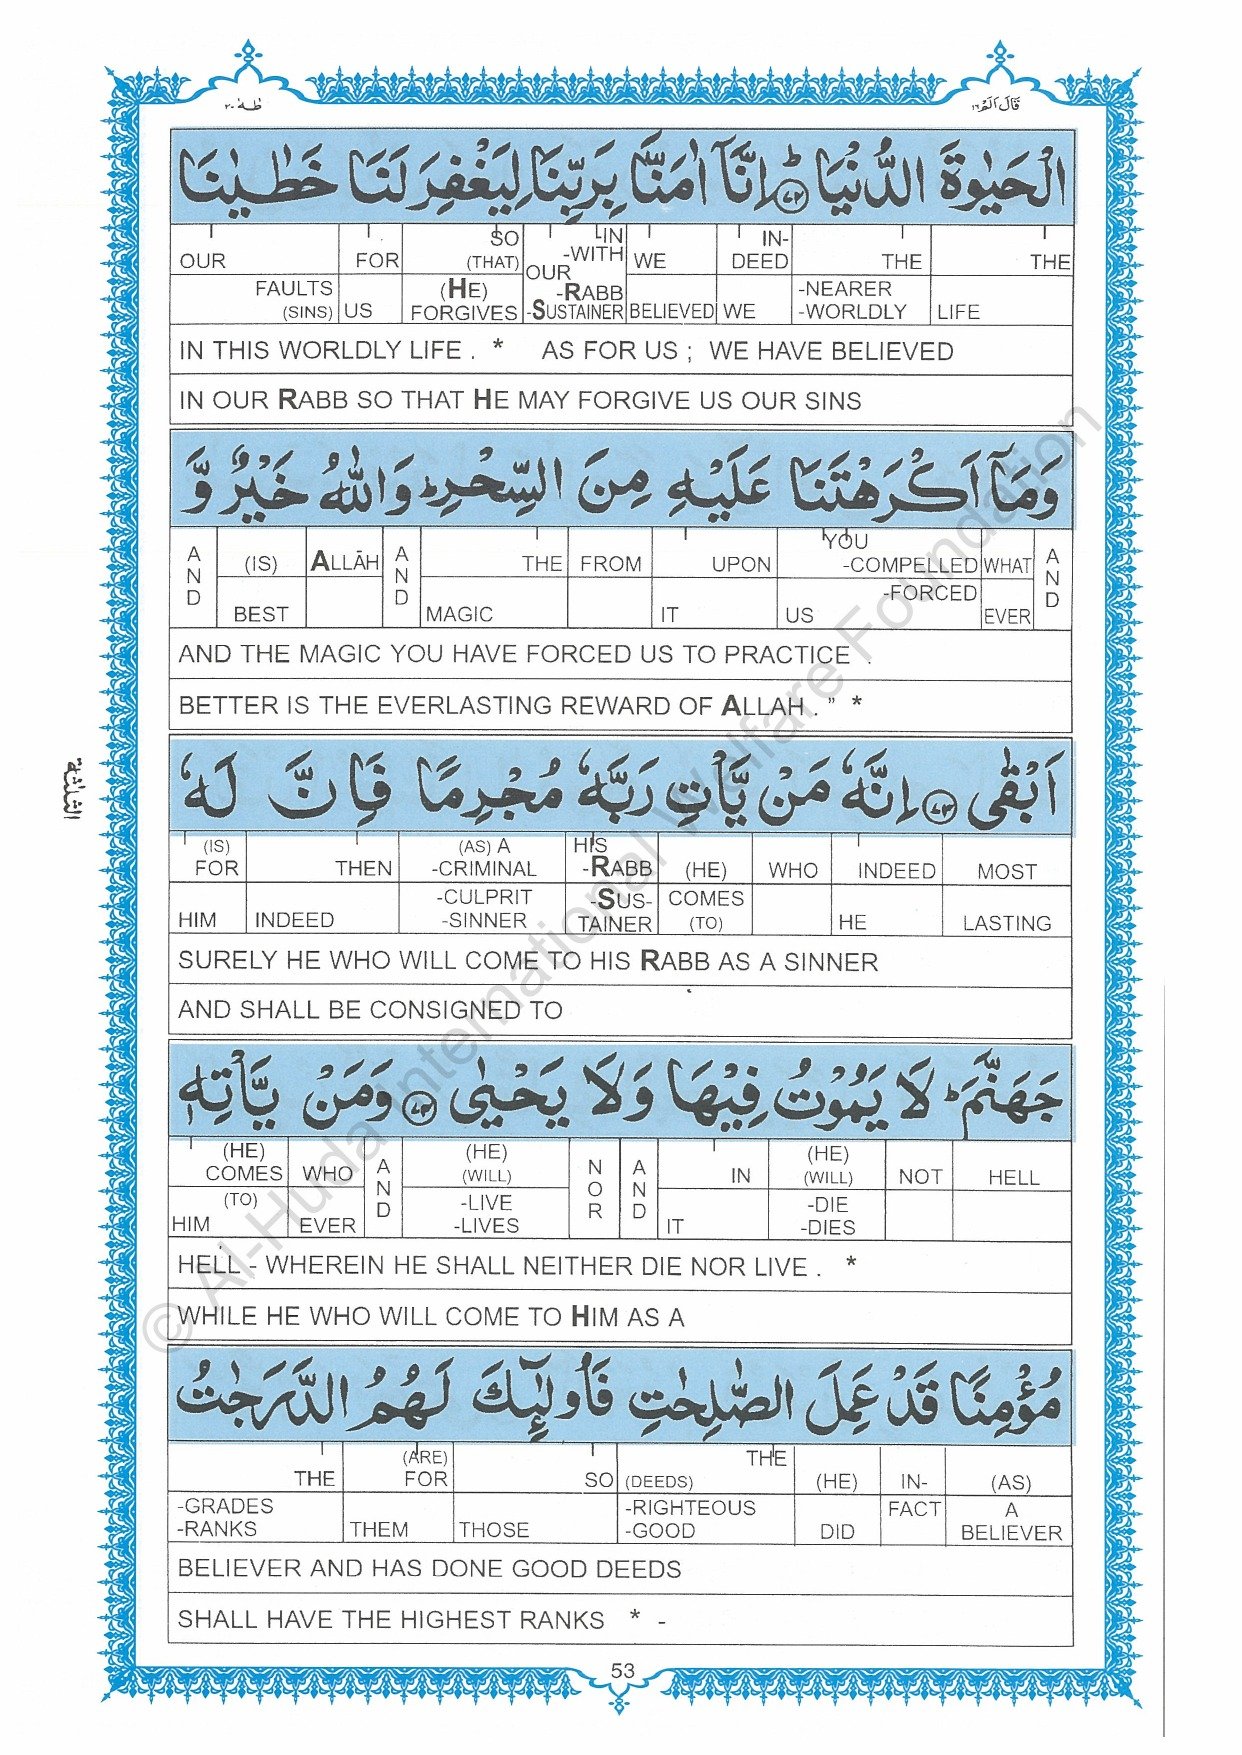 طٰهٰ ٢٠
قَالَ اَلَمْ ١٦
الْحَيٰوةَ الدُّنْيَا ؕ ﴿٧٢﴾ اِنَّآ اٰمَنَّا بِرَبِّنَا لِيَغْفِرَ لَنَا خَطٰيٰنَا
OUR FOR SO (THAT) OUR IN -WITH WE IN- DEED THE THE
FAULTS (SINS) US (HE) FORGIVES -RABB -SUSTAINER BELIEVED WE -NEARER -WORLDLY LIFE
IN THIS WORLDLY LIFE . * AS FOR US ; WE HAVE BELIEVED
IN OUR RABB SO THAT HE MAY FORGIVE US OUR SINS
وَمَآ اَكْرَهْتَنَا عَلَيْهِ مِنَ السِّحْرِ ؕ وَاللّٰهُ خَيْرٌ وَّ
AND (IS) ALLĀH AND THE FROM UPON YOU -COMPELLED WHAT AND
BEST MAGIC IT US -FORCED EVER
AND THE MAGIC YOU HAVE FORCED US TO PRACTICE .
BETTER IS THE EVERLASTING REWARD OF ALLAH . ” *
اَبْقٰى ﴿٧٣﴾ اِنَّهٗ مَنْ يَّاْتِ رَبَّهٗ مُجْرِمًا فَاِنَّ لَهٗ
(IS) FOR THEN (AS) A -CRIMINAL HIS -RABB (HE) WHO INDEED MOST
HIM INDEED -CULPRIT -SINNER -SUS- TAINER COMES (TO) HE LASTING
SURELY HE WHO WILL COME TO HIS RABB AS A SINNER
AND SHALL BE CONSIGNED TO
جَهَنَّمَ ؕ لَا يَمُوْتُ فِيْهَا وَلَا يَحْيٰى ﴿٧٤﴾ وَمَنْ يَّاْتِهٖ
(HE) COMES WHO AND (HE) (WILL) NOR AND IN (HE) (WILL) NOT HELL
(TO) HIM EVER -LIVE -LIVES IT -DIE -DIES
HELL - WHEREIN HE SHALL NEITHER DIE NOR LIVE . *
WHILE HE WHO WILL COME TO HIM AS A
مُؤْمِنًا قَدْ عَمِلَ الصّٰلِحٰتِ فَاُولٰٓئِكَ لَهُمُ الدَّرَجٰتُ
THE (ARE) FOR SO (DEEDS) THE (HE) IN- (AS)
-GRADES -RANKS THEM THOSE -RIGHTEOUS -GOOD DID FACT A BELIEVER
BELIEVER AND HAS DONE GOOD DEEDS
SHALL HAVE THE HIGHEST RANKS * -
53
الثلثة
© Al-Huda International Welfare Foundation